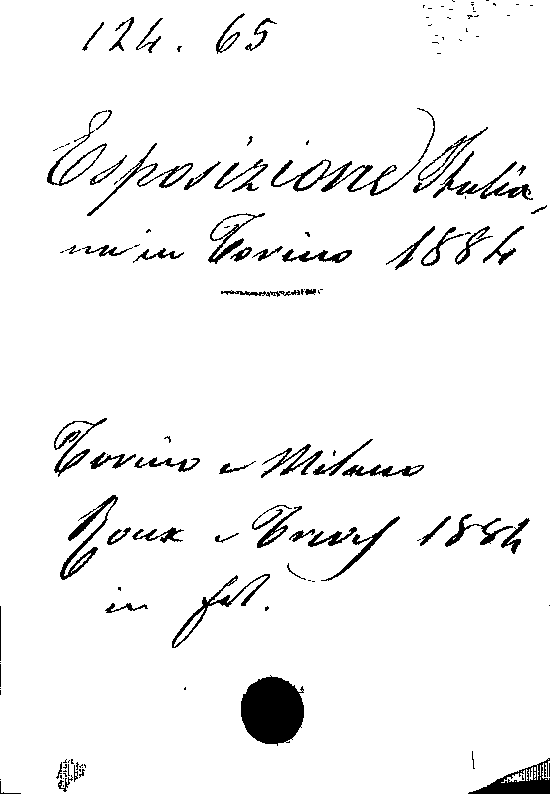 124.65
Esposizione Italia
na in Torino 1884
Torino e Milano
Roux e Treves 1884
in fol.